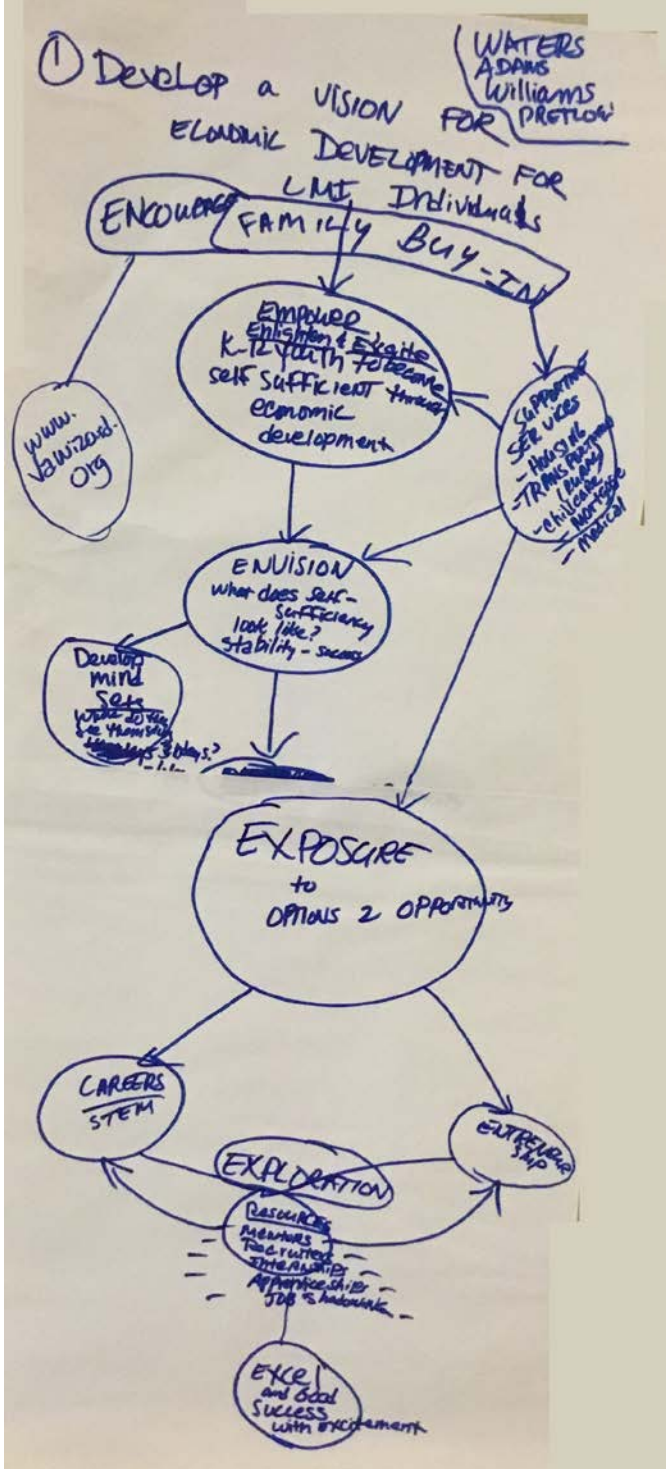 WATERS
ADAMS
Williams
PRETLOW
① DEVELOP a VISION FOR
ECONOMIC DEVELOPMENT FOR
LMI Individuals
ENCOURAGE FAMILY BUY-IN
EMPOWER
Enlighten & Excite
K-12 Youth to become
self sufficient through
economic
development
www.
Vawizard.
Org
SUPPORTING
SERVICES
- HOUSING
- TRANSPORTATION
- childcare
- Mortgage
- Medical
ENVISION
what does self-
sufficiency
look like?
stability - success
Develop
mind
sets
see
EXPOSURE
to
OPTIONS 2 OPPORTUNITY
CAREERS
STEM
ENTRENEUR
SHIP
EXPLORATION
RESOURCES
- Mentors -
- Recruiters -
- Internships -
- Apprenticeships -
- JOB Shadowing -
EXCEL
and Good
Success
with excitement